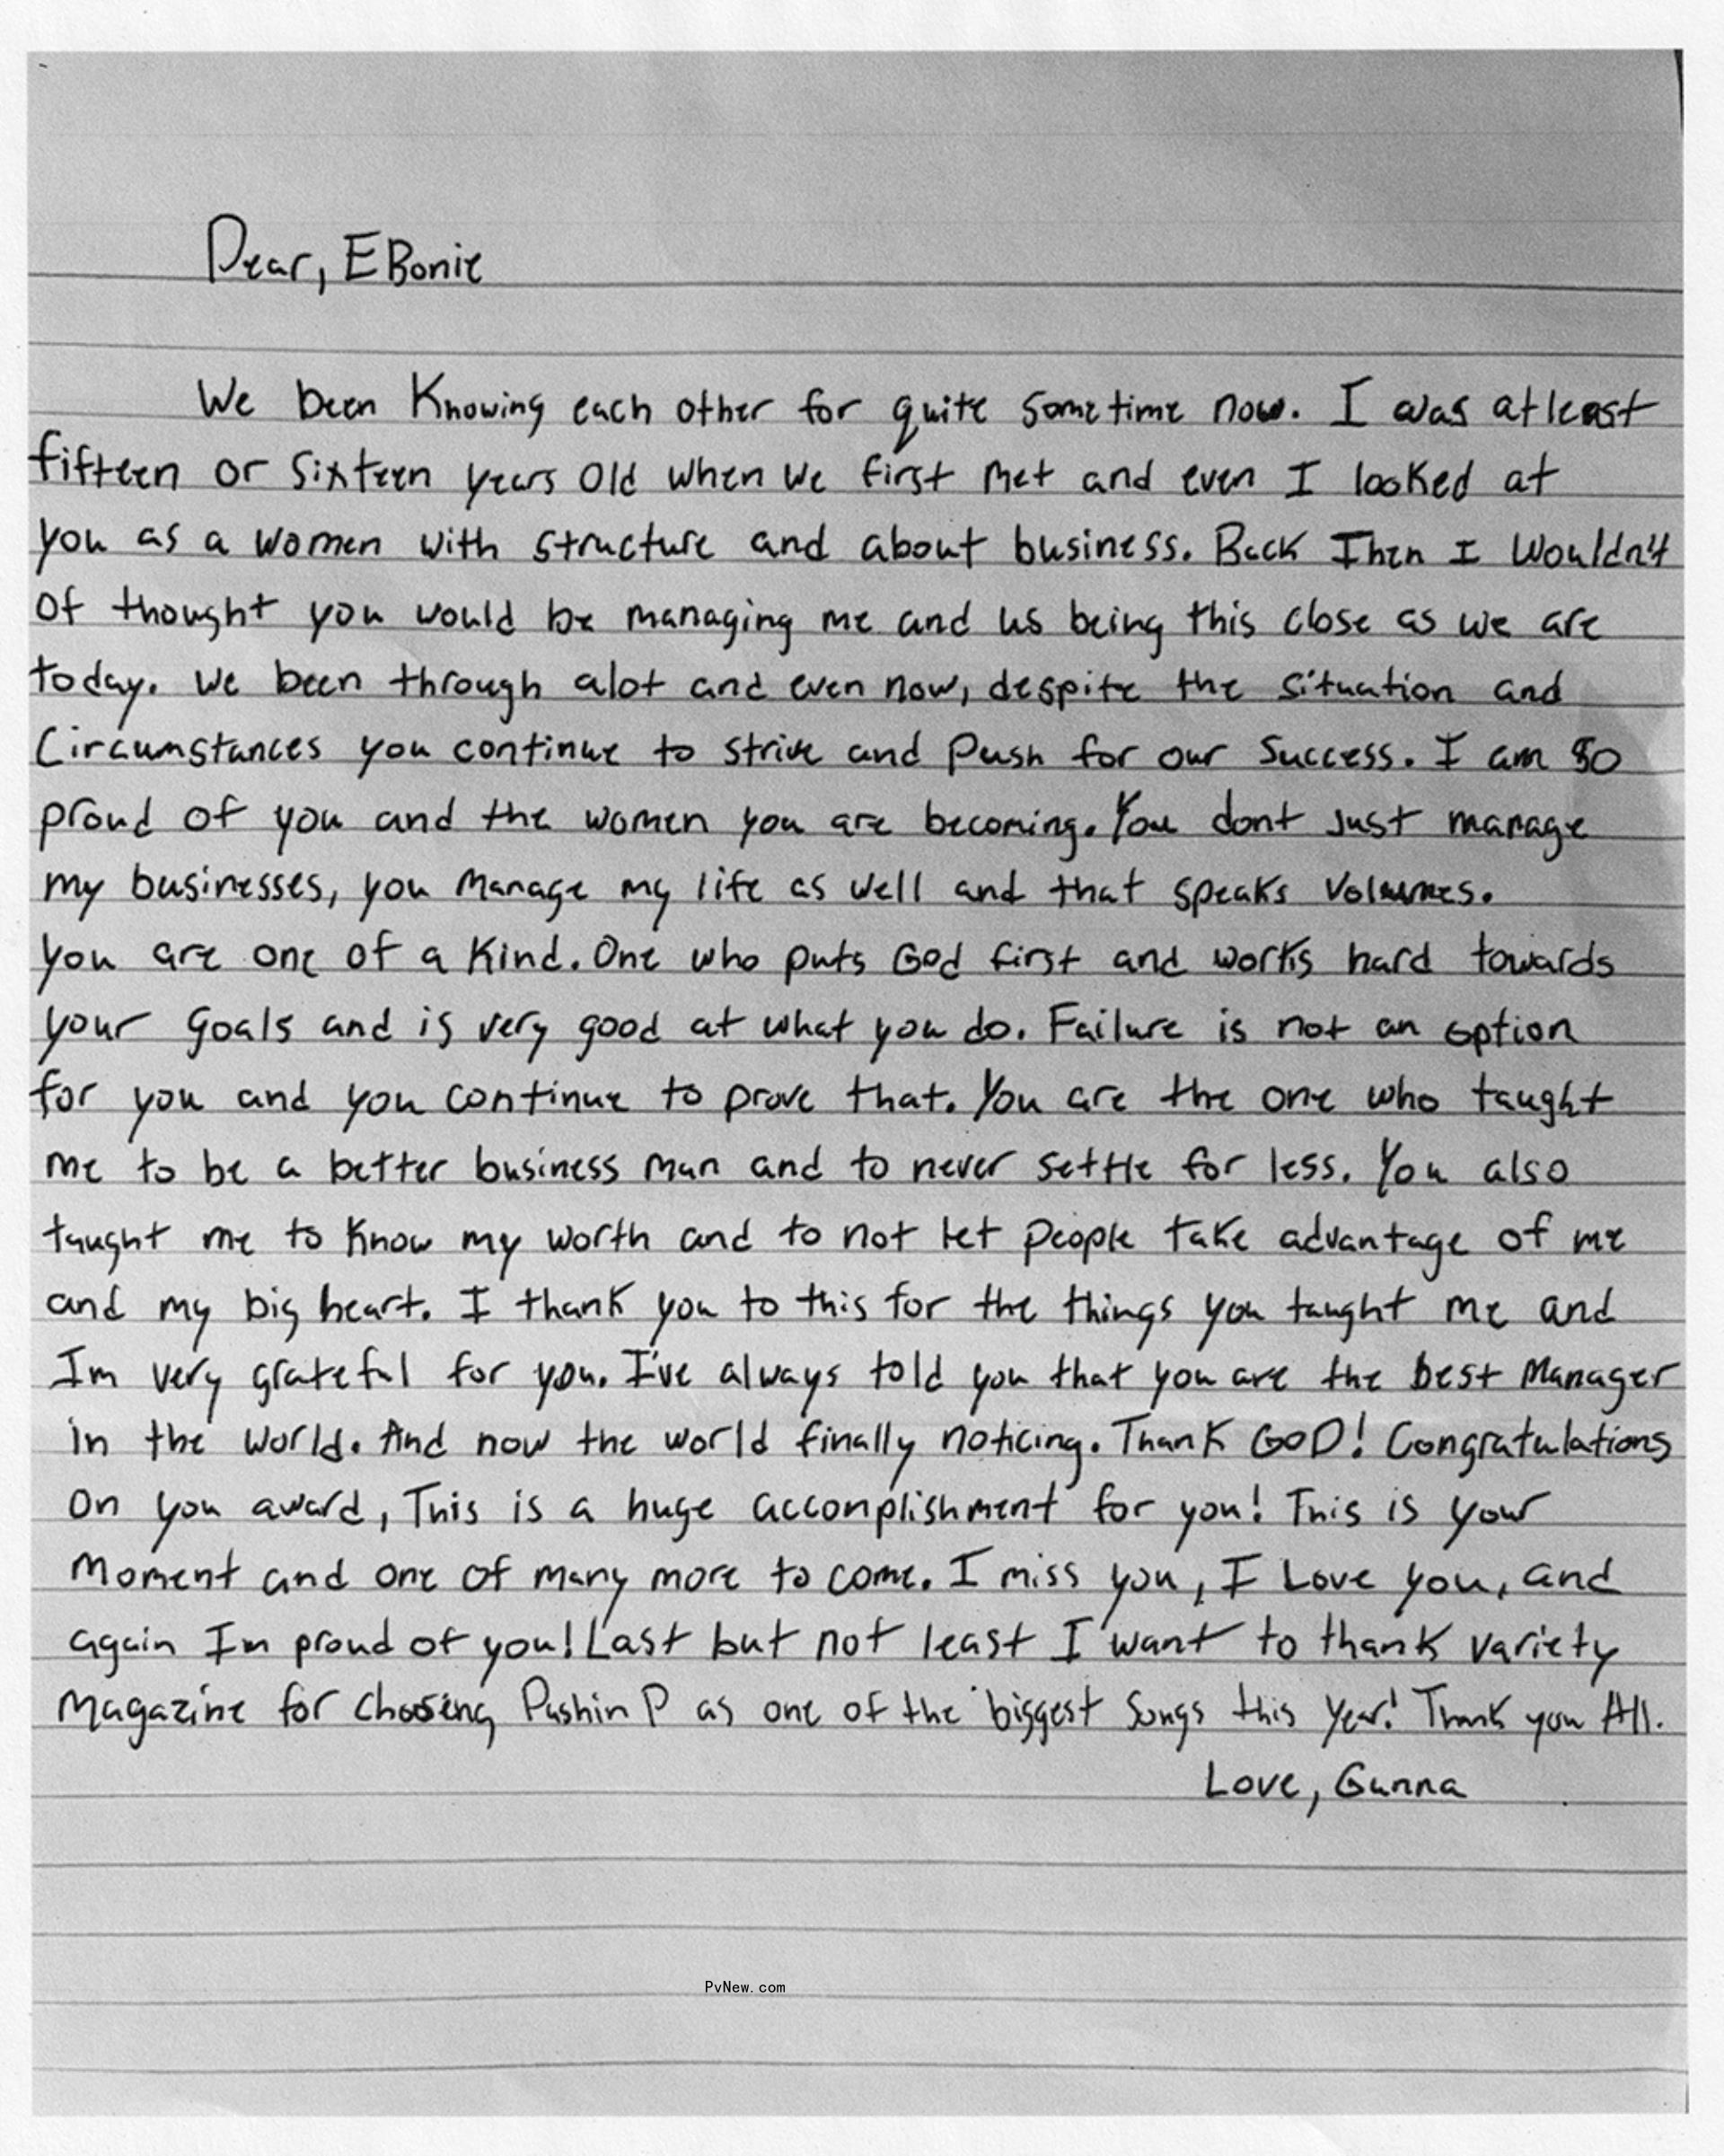 Dear, EBonie
We been Knowing each other for quite sometime now. I was atleast
fifteen or Sixteen years old when we first met and even I looked at
you as a women with structure and about business. Back Then I Wouldn't
of thought you would be managing me and us being this close as we are
today. We been through alot and even now, despite the situation and
Circumstances you continue to strive and Push for our Success. I am so
proud of you and the women you are becoming. You dont Just manage
my businesses, you Manage my life as well and that speaks Volumes.
you are one of a Kind. One who puts God first and works hard towards
your Goals and is very good at what you do. Failure is not an option
for you and you continue to prove that. You are the one who taught
me to be a better business man and to never settle for less. You also
taught me to Know my worth and to not let People take advantage of me
and my big heart. I thank you to this for the things you taught me and
Im very grateful for you. I've always told you that you are the best Manager
in the World. And now the world finally noticing. Thank GOD! Congratulations
on you award, This is a huge accomplishment for you! This is your
Moment and one of many more to come. I miss you, I Love you, and
again Im proud of you! Last but not least I want to thank variety
Magazine for Choosing Pushin P as one of the biggest Songs this Year! Thank you All.
Love, Gunna
PvNew.com